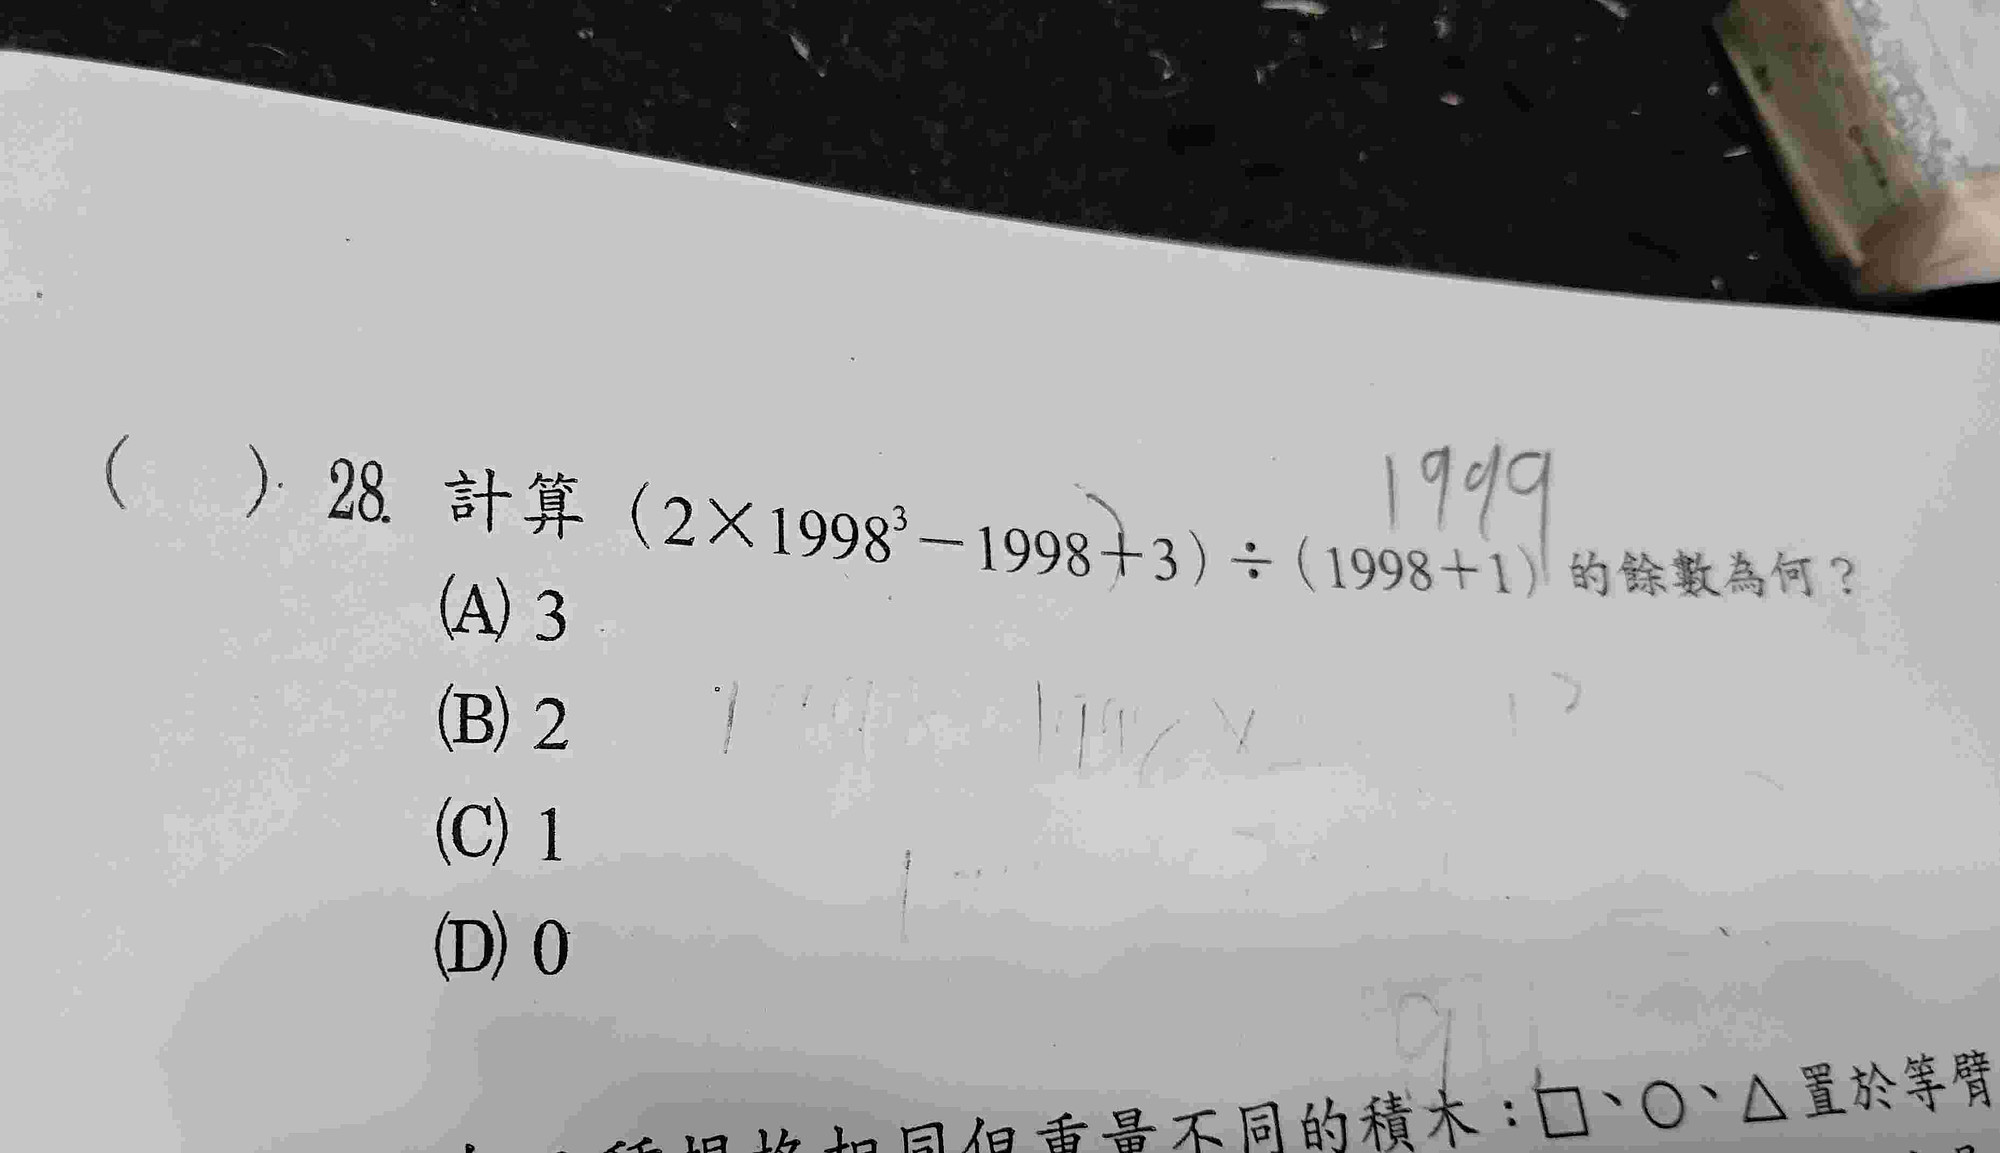 1999
( ) 28. 計算(2×1998³-1998+3)÷(1998+1)的餘數為何?
(A) 3
(B) 2
(C) 1
(D) 0
9
種規格相同但重量不同的積木:□、○、△置於等臂